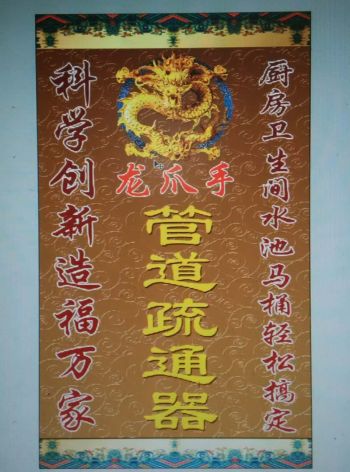 龙爪手
管道疏通器
厨房卫生间水池马桶轻松搞定
科学创新造福万家